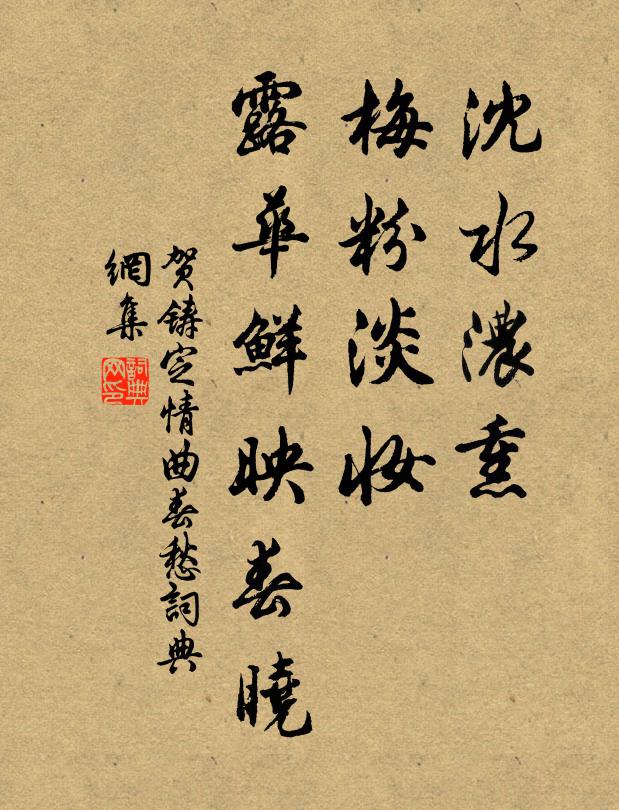 沈水濃熏
梅粉淡妝
露華鮮映春曉
賀鑄定情曲春愁詞典
網集
詞典
网印